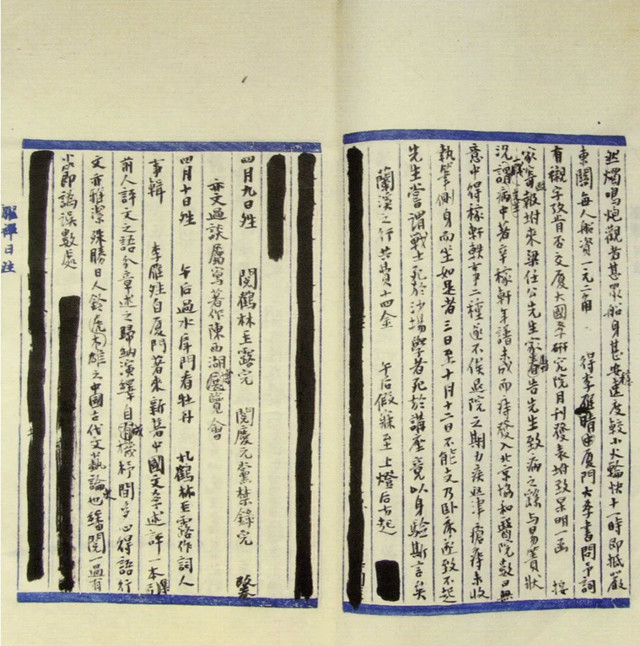 然燭鳴炮觀者甚眾船身甚安速度較小火輪快十一時即抵嚴
東關每人船資一元二角　得李雁晴由厦門大學書問予詞
有襯字攷肯否交厦大國學研究院月刊發表坿致景明一函　接
家書報坿來梁任公先生家書告先生致病之謠與易簀狀
況謂病中著辛稼軒年譜未成而痔發入北京協和醫院數日無
意中得稼軒軼事二種遂不俟退院之期力疾赴津瘡痔未收
執筆側身而坐如是者三日至十月十二日不能支乃臥床遂致不起
先生嘗謂戰士死於沙場學者死於講座竟以身驗斯言矣
蘭溪之行共費十四金　午后假寐至上燈后方起
四月九日姓　閱鶴林玉露完　閱慶元黨禁錄完
亦文過談屬寫著作陳西湖展覽會
四月十日姓　午后過水屏門看牡丹　札鶴林玉露作詞人
事輯　李雁晴自厦門著來新著中國文學述評一本
前人評文之語分章述之歸納演繹自成機杼間多心得語行
文亦雅潔殊勝日人鈴木虎雄之中國古代文藝論史也繙閱一過有
小節譌誤數處
臞禪日注